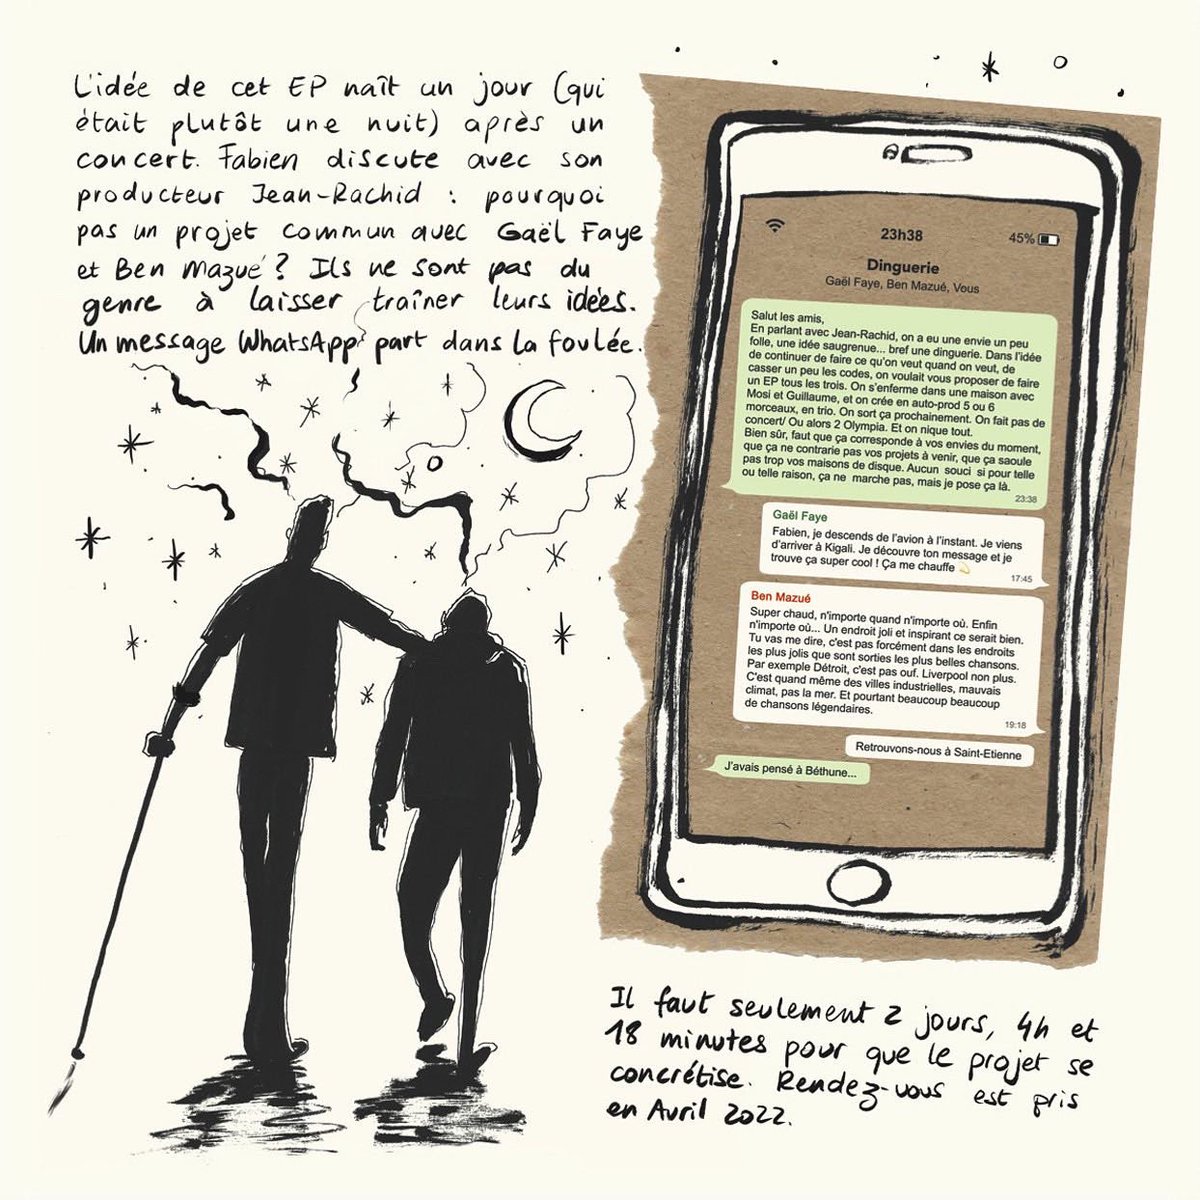 L'idée de cet EP naît un jour (qui
était plutôt une nuit) après un
concert. Fabien discute avec son
producteur Jean-Rachid : pourquoi
pas un projet commun avec Gaël Faye
et Ben Mazué ? Ils ne sont pas du
genre à laisser traîner leurs idées.
Un message WhatsApp part dans la foulée.
23h38
45%
Dinguerie
Gaël Faye, Ben Mazué, Vous
Salut les amis,
En parlant avec Jean-Rachid, on a eu une envie un peu
folle, une idée saugrenue... bref une dinguerie. Dans l'idée
de continuer de faire ce qu'on veut quand on veut, de
casser un peu les codes, on voulait vous proposer de faire
un EP tous les trois. On s'enferme dans une maison avec
Mosi et Guillaume, et on crée en auto-prod 5 ou 6
morceaux, en trio. On sort ça prochainement. On fait pas de
concert/ Ou alors 2 Olympia. Et on nique tout.
Bien sûr, faut que ça corresponde à vos envies du moment,
que ça ne contrarie pas vos projets à venir, que ça saoule
pas trop vos maisons de disque. Aucun souci si pour telle
ou telle raison, ça ne marche pas, mais je pose ça là.
23:38
Gaël Faye
Fabien, je descends de l'avion à l'instant. Je viens
d'arriver à Kigali. Je découvre ton message et je
trouve ça super cool ! Ça me chauffe 💫
17:45
Ben Mazué
Super chaud, n'importe quand n'importe où. Enfin
n'importe où... Un endroit joli et inspirant ce serait bien.
Tu vas me dire, c'est pas forcément dans les endroits
les plus jolis que sont sorties les plus belles chansons.
Par exemple Détroit, c'est pas ouf. Liverpool non plus.
C'est quand même des villes industrielles, mauvais
climat, pas la mer. Et pourtant beaucoup beaucoup
de chansons légendaires.
19:18
Retrouvons-nous à Saint-Etienne
J'avais pensé à Béthune...
Il faut seulement 2 jours, 4h et
18 minutes pour que le projet se
concrétise. Rendez-vous est pris
en Avril 2022.